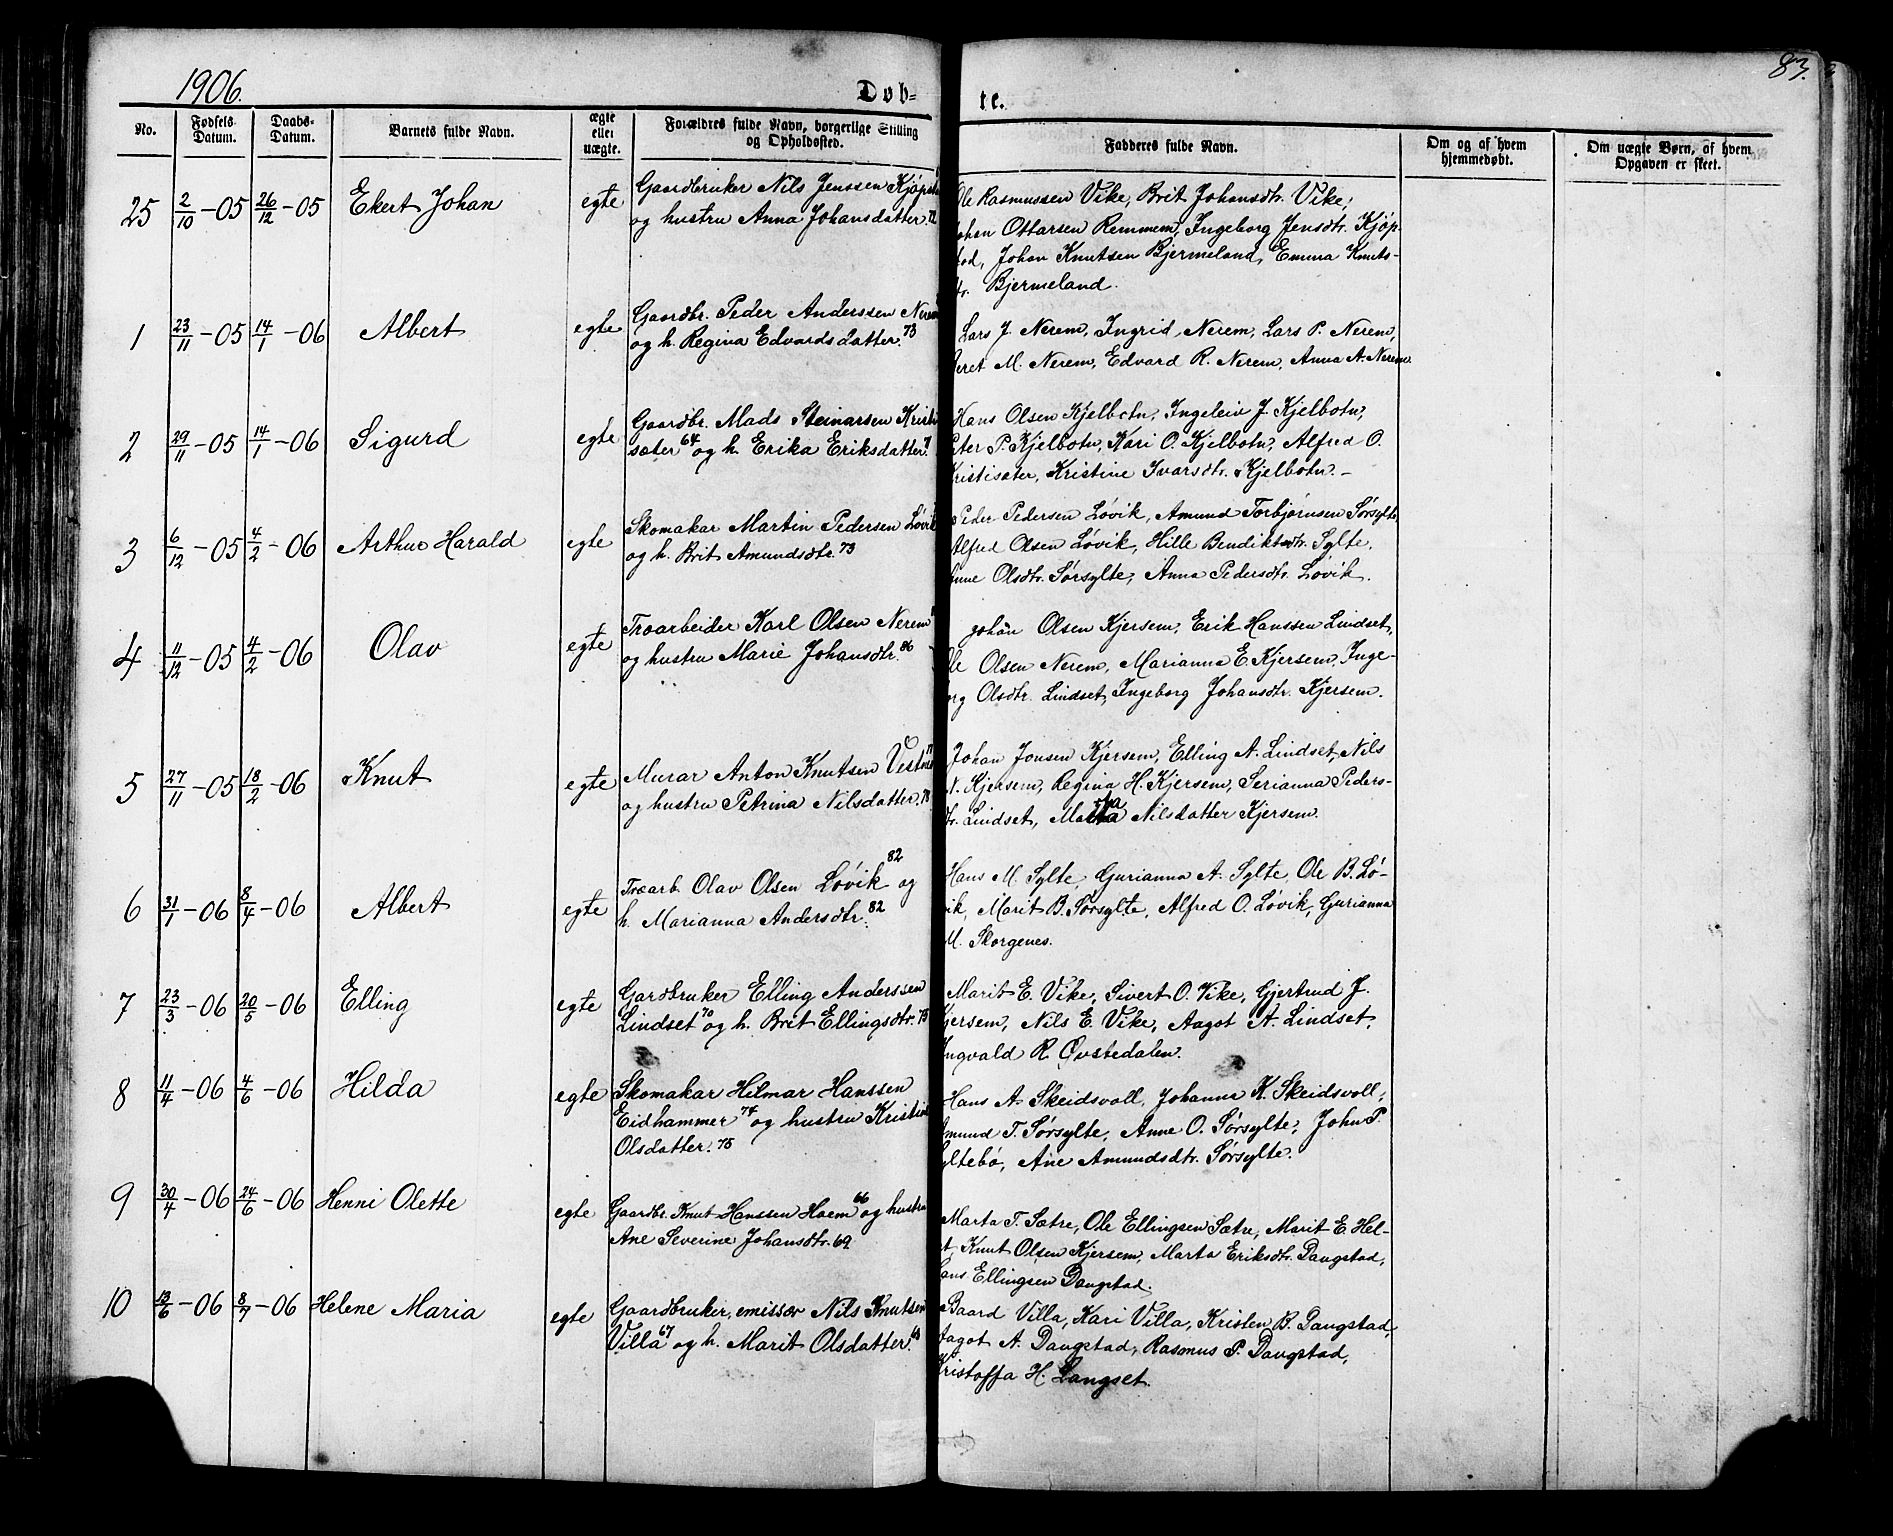 1906.
Døb-
te.
83.
No.
Fødsels Datum.
Daabs-Datum.
Barnets fulde Navn.
ægte eller uægte.
Forældres fulde Navn, borgerlige Stilling og Opholdssted.
Fadderes fulde Navn.
Om og af hvem hjemmedøbt.
Om uægte Børn, af hvem Opgaven er skeet.
25 2/10-05 26/12-05 Ekert Johan egte Gaardbruker Nils Jenssen Kjøpsta
og hustru Anna Johansdatter. 72
Ole Rasmussen Vike, Brit Johansdtr. Vike,
Johan Ottarsen Remmem, Ingeborg Jensdtr. Kjøp-
stad, Johan Knutsen Bjermeland, Emma Knuts-
dtr. Bjermeland.
1 23/11-05 14/1-06 Albert egte Gaardbr. Peder Anderssen Nerem
og h. Regina Edvardsdatter. 73
Lars J. Nerem, Ingrid Nerem, Lars P. Nerem,
Beret M. Nerem, Edvard R. Nerem, Anna A. Nerem.
2 29/11-05 14/1-06 Sigurd egte Gaardbr. Mads Steinarsen Kristi
sæter 64 og h. Erika Eriksdatter. 71
Hans Olsen Kjelbotn, Ingeleiv J. Kjelbotn,
Peter P. Kjelbotn, Kari O. Kjelbotn, Alfred O.
Kristisæter, Kristine Ivarsdtr. Kjelbotn. –
3 6/12-05 4/2-06 Arthur Harald egte Skomakar Martin Pedersen Løvik
og h. Brit Amundsdtr. 73
Peder Pedersen Løvik, Amund Torbjørnsen Sørsylte
Alfred Olsen Løvik, Hille Bendiktsdtr. Sylte,
Anne Olsdtr. Sørsylte, Anna Pedersdtr. Løvik.
4 11/12-05 4/2-06 Olav egte Træarbeider Karl Olsen Nerem
og hustru Marie Johansdtr. 86
Johan Olsen Kjersem, Erik Hanssen Lindset,
Ole Olsen Nerem, Marianna E. Kjersem, Inge-
borg Olsdtr. Lindset, Ingeborg Johansdtr. Kjersem.
5 27/11-05 18/2-06 Knut egte Murar Anton Knutsen Vestnes
og hustru Petrina Nilsdatter. 78
Johan Jonsen Kjersem, Elling A. Lindset, Nils
N. Kjersem, Regina H. Kjersem, Serianna Peders-
dtr. Lindset, Marta Nilsdatter Kjersem.
6 31/1-06 8/4-06 Albert egte Træarb. Olav Olsen Løvik 82 og
h. Marianna Andersdtr. 82
Hans M. Sylte, Gurianna A. Sylte, Ole B. Lø-
vik, Marit B. Sørsylte, Alfred O. Løvik, Gurianna
M. Skorgenes.
7 23/3-06 20/5-06 Elling egte Gardbruker Elling Anderssen
Lindset 70 og h. Brit Ellingsdtr. 75
Marit E. Vike, Sivert O. Vike, Gjertrud J.
Kjersem, Nils E. Vike, Aagot A. Lindset,
Ingvald R. Øvstedalen.
8 11/4-06 4/6-06 Hilda egte Skomakar Hilmar Hanssen
Eidhammer 74 og hustru Kristine
Olsdatter. 75
Hans A. Skeidsvoll, Johanna K. Skeidsvoll,
Amund T. Sørsylte, Anne O. Sørsylte, John P.
Syltebø, Ane Amundsdtr. Sørsylte.
9 30/4-06 24/6-06 Henni Olette egte Gaardbr. Knut Hanssen Hoem 66 og hustru
Ane Severine Johansdtr. 69
Marta T. Sætre, Ole Ellingsen Sætre, Marit E. Hel-
set, Knut Olsen Kjersem, Marta Eriksdtr. Daugstad,
Hans Ellingsen Daugstad.
10 13/6-06 8/7-06 Helene Maria egte Gaardbruker, emissær Nils Knutsen
Villa 67 og h. Marit Olsdatter. 63
Baard Villa, Kari Villa, Kristen B. Daugstad,
Aagot A. Daugstad, Rasmus P. Daugstad,
Kristoffa H. Langset.